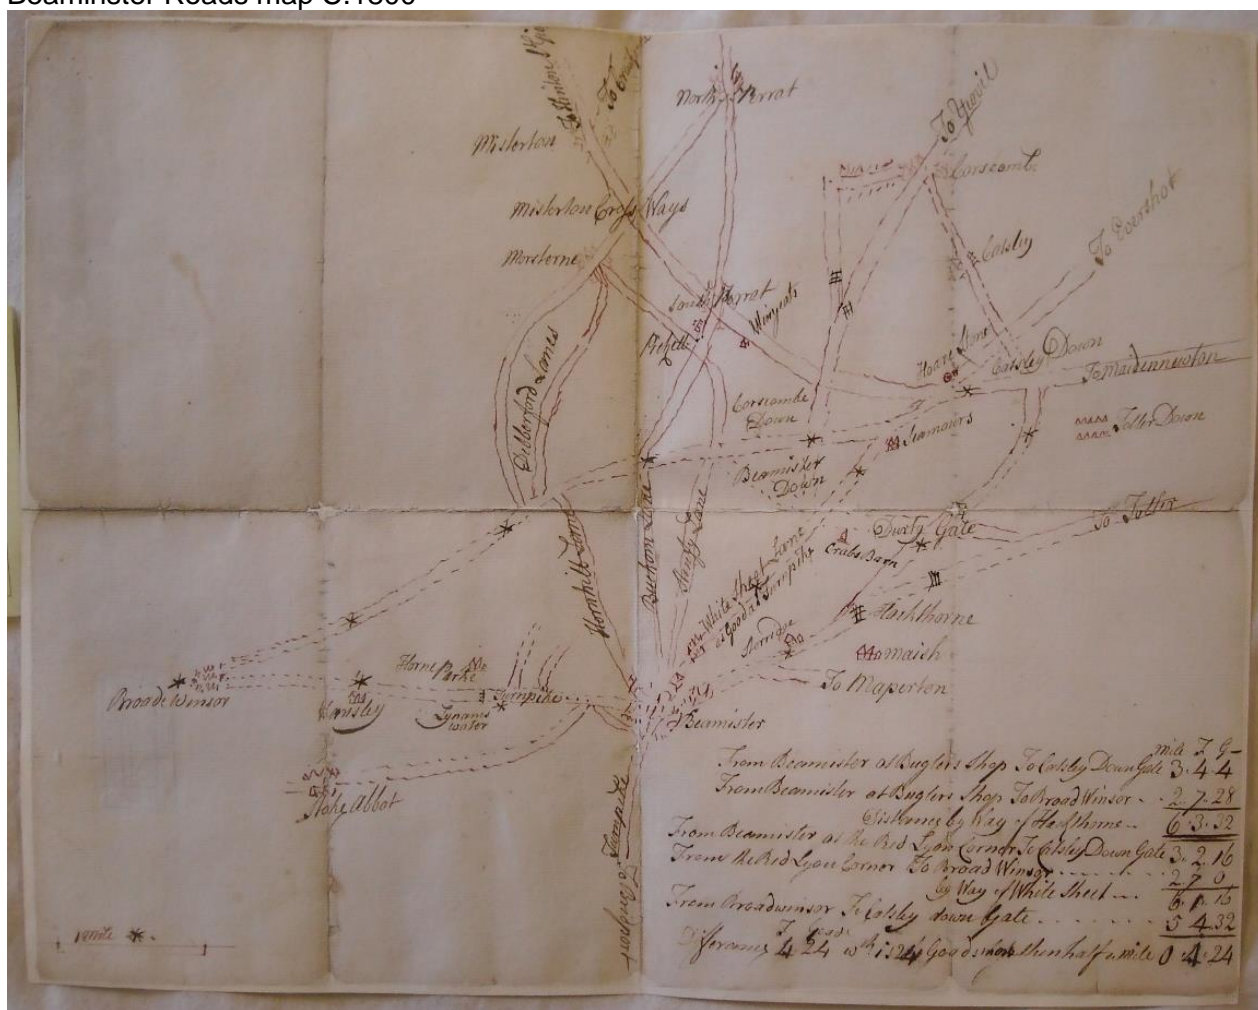 Beaminster Roads map C.1800
To Hinton St G
To Crewk
North Perrat
Misterton
To Yeovil
Corscombe
Misterton Cross Ways
Mosterne
Catsley
To Evershot
South Perrat
Winyeats
Pickett
Hoare Stone
Catsley Down
To Maidennewton
Dibberford Lanes
Corscombe
Down
Seamours
Toller Down
Beamister
Down
Hornhill Lane
Buckom Lane
Stinty Lane
White Sheet Lane
as Good as Turnpike
Crabs Barn
Durty Gate
To Toller
Storridge
Hackthorne
Marsh
To Maperton
Horne Park
Broade Winsor
Hansley
Lynams
water
Turnpike
Beamister
Stoke Abbot
To Bridport Turnpike
mile F G
From Beamister at Buglers Shop To Catsley Down Gate 3.4.4
From Beamister at Buglers Shop To Broad Winsor 2.7.28
Distance by Way of Hackthorne 6.3.32
From Beamister at the Red Lyon Corner To Catsley Down Gate 3.2.16
From the Red Lyon Corner To Broad Winsor 2.7.0
by Way of White Sheet 6.1.16
From Broadwinsor To Catsley down Gate 5.4.32
Differance 4 24 wch is 24 Goads more then half a mile 0.4.24
1 mile